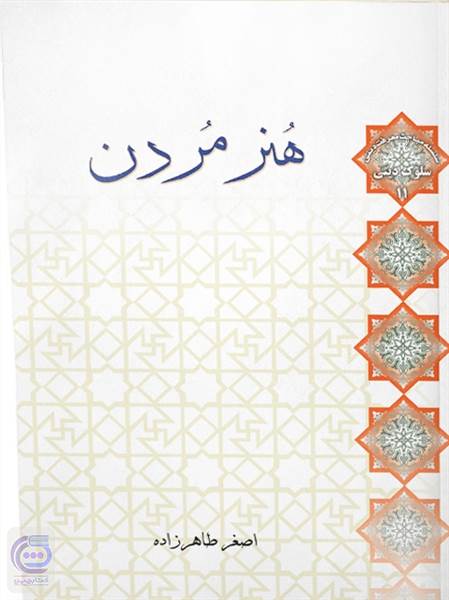 هُنر مُردن
سلوک دینی
۱۱
اصغر طاهرزاده